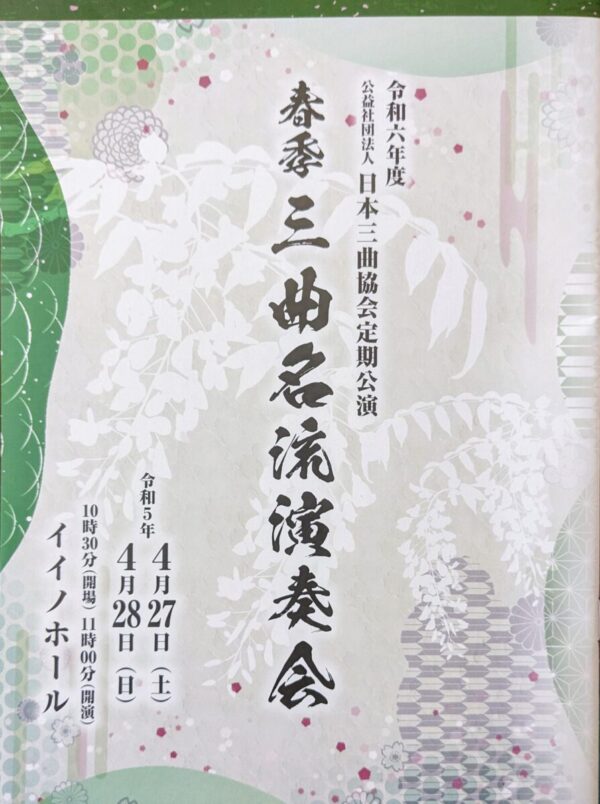 令和六年度
公益社団法人 日本三曲協会定期公演
春季 三曲名流演奏会
令和5年 4月27日(土)
4月28日(日)
10時30分(開場) 11時00分(開演)
イイノホール